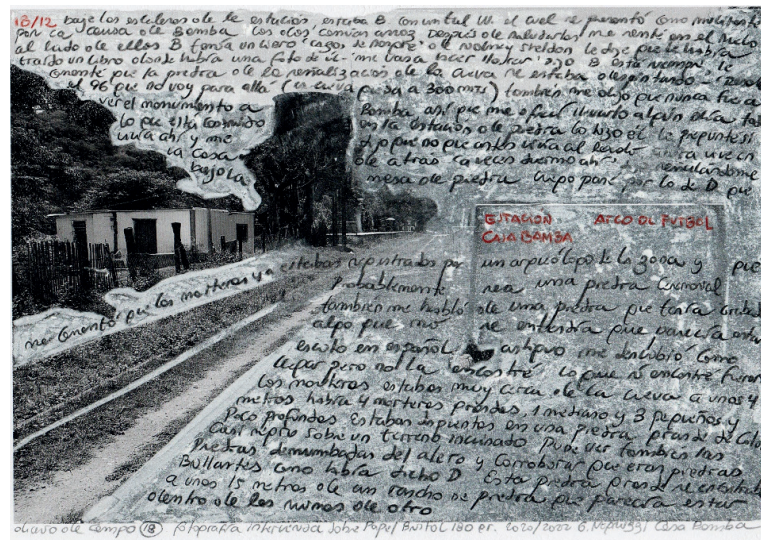 18/12 bajé las escaleras de la estación estaba B. con un tal W. el cual se presentó como militante
por la causa de Bomba los dos comían arroz después de saludarlos me senté en el suelo
al lado de ellos B tenía un libro de Sidney Sheldon le dije que le había
traído un libro donde había una foto de él - me vas a hacer llorar dijo B. esta siempre le
comenté que la piedra de la señalización de la cueva se estaba despintando - desde
el 96 que no voy para allá (la cueva queda a 300 mts) también me dijo que nunca fue a
ver el monumento a Bomba así que me ofrecí llevarlo algún día
lo que está construido en la estación de piedra lo hizo él le pregunté si
vivía ahí y me dijo que no que antes vivía al lado ahora vive en
la casa de atrás a veces duermo ahí señalándome
bajo la mesa de piedra luego pasé por lo de D que
ESTACION ARCO DE FUTBOL
CASA BOMBA
me comentó que los morteros ya estaban registrados por un arqueólogo de la zona y que
probablemente sea una piedra ceremonial
también me habló de una piedra que tenía
algo que no se entendía que parecía estar
escrito en español antiguo me describió como
llegar pero no la encontré lo que sí encontré fueron
los morteros estaban muy cerca de la cueva a unos 4
metros había 4 morteros grandes, 1 mediano y 3 pequeños y
poco profundos estaban dispuestos en una piedra grande de color
casi negro sobre un terreno inclinado pude ver también las
piedras derrumbadas del alero y corroborar que eran piedras
brillantes como había dicho D. Esta piedra grande se encontraba
a unos 15 metros de un rancho de piedra que parecía estar
dentro de las ruinas de otro
diario de campo 18 fotografía intervenida sobre papel Bristol 180 gr. 2020/2022 G. Casa Bomba